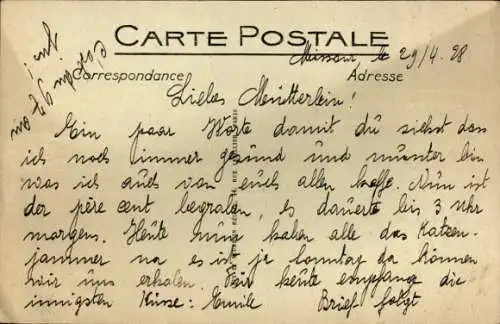 CARTE POSTALE
le 29/4. 28
Correspondance
Adresse
Liebes Meutterlein!
Ein paar Worte damit du siehst das
ich noch immer gesund und munter bin
was ich auch von euch allen hoffe. Nun ist
der père cent begraben, es dauerte bis 3 Uhr
morgens. Heute nun haben alle das Katzen-
jammer na es ist ja Sonntag da können
wir uns erholen. Für heute empfange die
innigsten Küsse: Emile Brief folgt